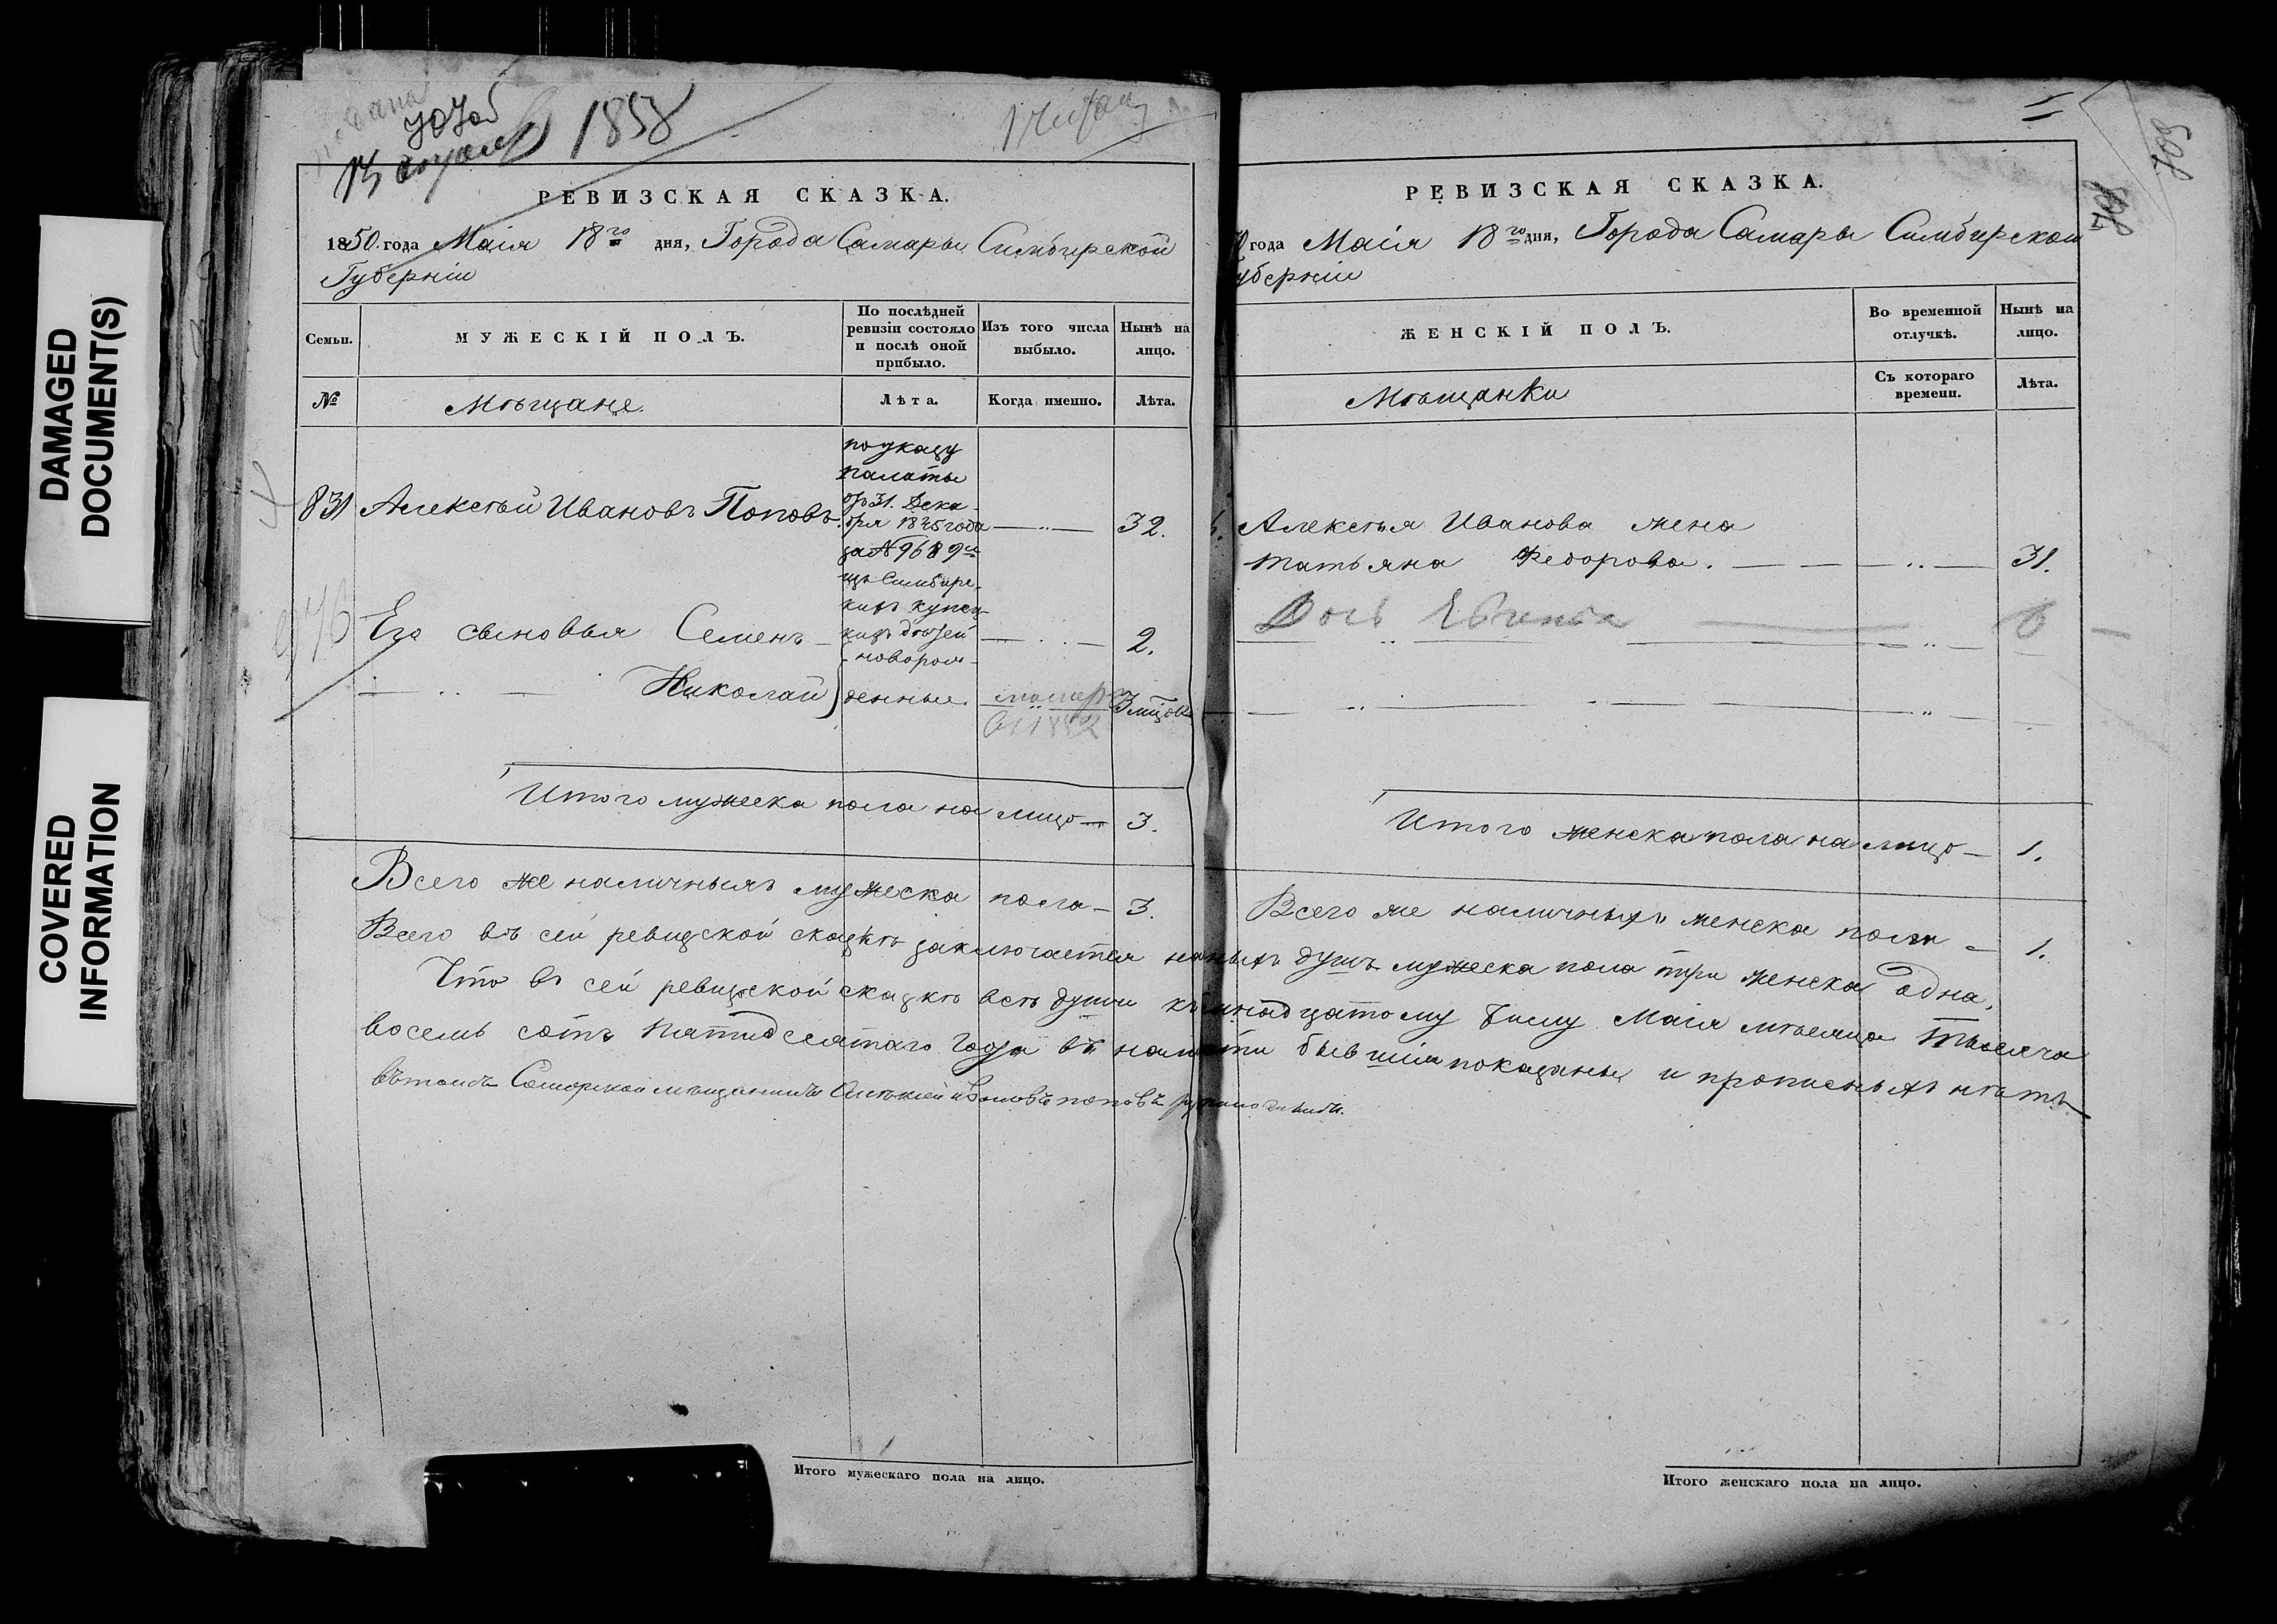 DAMAGED
DOCUMENT(S)
COVERED
INFORMATION
1858
РЕВИЗСКАЯ СКАЗКА.
1850. года Маія 18го дня, Города Самары Симбирской
Губерніи
Семьи.
МУЖЕСКІЙ ПОЛЪ.
По послѣдней
ревизіи состояло
и послѣ оной
прибыло.
Изъ того числа
выбыло.
Нынѣ на
лицо.
№
Мѣщане.
Лѣта.
Когда именно.
Лѣта.
831 Алексѣй Ивановъ Поповъ
по указу
палаты
отъ 31. Декаб
бря 1845 года
за № 9689
изъ Симбирс-
кихъ купец-
кихъ дѣтей
32.
Его сыновья Семенъ
2.
Николай
новорож-
денные.
помер
въ 1852
3 мѣсов
Итого мужеска пола на лицо 3.
Всего же наличныхъ мужеска пола 3.
РЕВИЗСКАЯ СКАЗКА.
года Маія 18го дня, Города Самары Симбирской
уберніи
ЖЕНСКІЙ ПОЛЪ.
Во временной
отлучкѣ.
Нынѣ на
лицо.
Мѣщанки
Съ котораго
времени.
Лѣта.
Алексѣя Иванова жена
Татьяна Федорова. 31.
Дочь 6
Итого женска пола на лицо 1.
Всего же наличныхъ женска пола 1.
Всего въ сей ревизской сказкѣ заключается наличныхъ душъ мужеска пола три женска одна,
Что въ сей ревизской сказкѣ всѣ души къ числу Маія мѣсяца тысяча
восемь сотъ пятидесятаго года въ наличности бывшіи показаны и прописныхъ нѣтъ
въ томъ Самарской мѣщанинъ Алексѣй Ивановъ Поповъ
708
709
Итого мужескаго пола на лицо.
Итого женскаго пола на лицо.